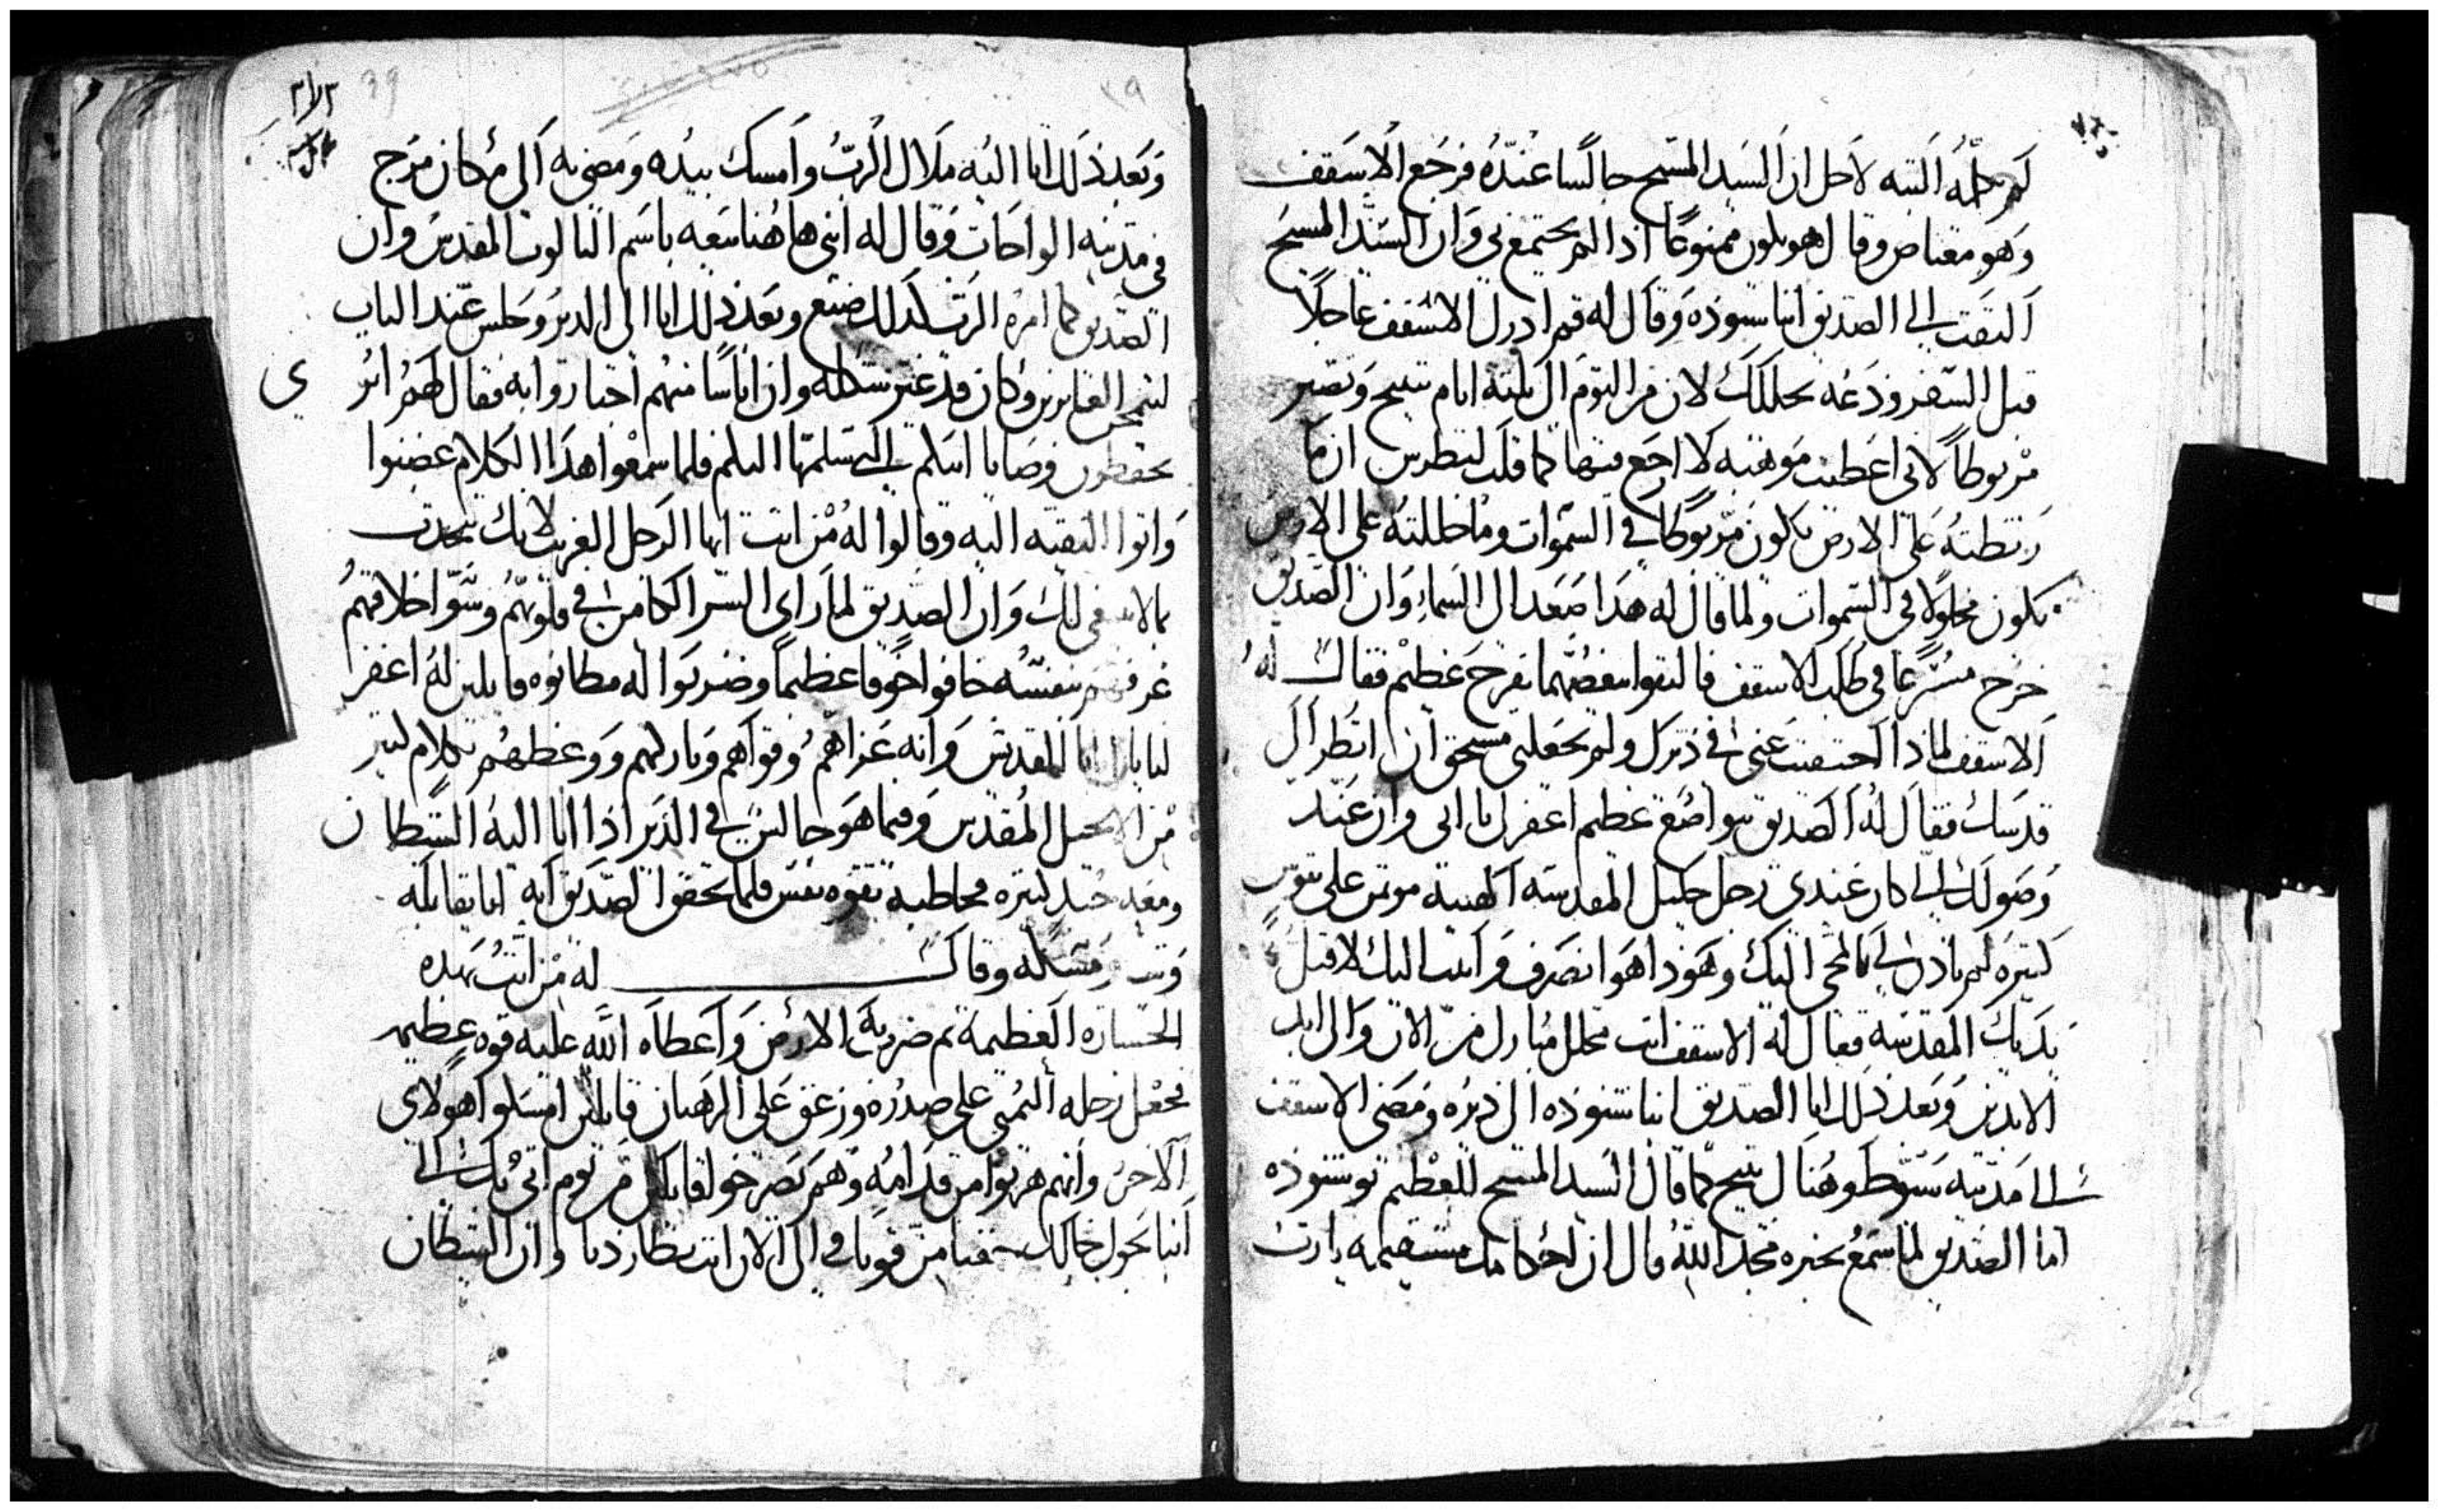 لم يكلمه البته لاجل ان السيد المسيح جالسا عنده فرجع الاسقف
وهو مغتاض وقال هو يكون ممنوعا اذا لم يجتمع بي وان السيد المسيح
التفت الى الصديق انبا سنوده وقال له قم ادرك الاسقف عاجلا
قبل السفر ودعه يحاللك لان من اليوم الى ثلثة ايام يتنيح وتصير
مربوطا لاني اعطيت موهبه لا ارجع فيها كما قلت لبطرس ان ما
ربطته على الارض يكون مربوطا في السموات وما حللته على الارض
يكون محلولا في السموات ولما قال له هذا صعد الى السماء وان الصديق
خرج مسرعا في طلب الاسقف فالتقوا ببعضهما بفرح عظيم فقال له
الاسقف لماذا احتفيت عني في ديرك ولم تجعلني مستحق ان انظر الى
قدسك فقال له الصديق بتواضع عظيم اغفر لي يا ابي وان عند
وصولك الي كان عندي رجل جليل المقدسه الهيبة موتمن على
كتيره لم ياذن لي بالمجي اليك وهوذا هو انصرف واتيت اليك لاقبل
يديك المقدسه فقال له الاسقف انت محالل مبارك من الان والى ابد
الابدين وبعد ذلك اتا الصديق انبا شنوده الى ديره ومضى الاسقف
الى مدينه سيوط وهناك تنيح كما قال السيد المسيح للعظيم بوشنوده
اما الصديق لما سمع بخبره مجد الله وقال ان احكامك مستقيمه يا رب
وبعد ذلك اتا اليه ملاك الرب وامسك بيده ومضى به الى مكان مرج
في مدينه الواحات وقال له ابني هاهنا بيعه باسم الثالوت المقدس وان
الصديق كما امره الرب كذلك صنع وبعد ذلك اتا الى الدير وجلس عند الباب
ليمتحن العابرين وكان قد غير شكله وان اناسا منهم اجتازوا به فقال لهم اترى
يحفظون وصايا ابيكم التي تسلمتها اليكم فلما سمعوا هذا الكلام غضبوا
واتوا البقيه اليه وقالوا له من انت ايها الرجل الغريب لانك تتحدت
وان الصديق لما راى السر الكامن في قلوبهم وسو اخلاقهم
عرفهم بنفسه فخافوا خوفا عظيما وضربوا له مطانوه قايلين له اغفر
لنا يا ابانا القديس وانه عزاهم وقواهم وباركهم ووعظهم بكلام كتير
من الانجيل المقدس وفيما هو جالس في الدير اذا اتا اليه الشيطان
ومعه جند كتيره مخاطبه بقوه نفس فلما تحقق الصديق انه اتا يقاتله
مسكه وقال له من انت بهده
الجساره العظيمة تم ضرب به الارض واعطاه الله عليه قوه عظيمه
فجعل رجله اليمنى على صدره وزعق على الرهبان قايلا امسكوا هولاي
الاخر وانهم هربوا من قدامه وهم يصرخوا قايلين من يوم اتي بك الى
وان الشيطان